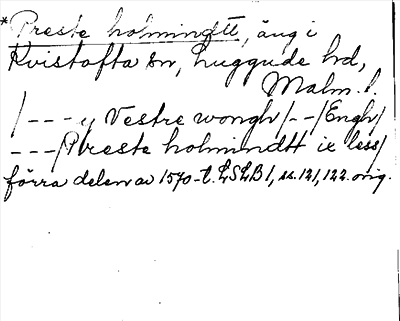 *Preste holmindtt, äng i
Kvistofta sn, Luggude hd,
Malm. l.
/--- y Vestre wongh/--/Engh/
---/Preste holmindtt ix less/
förra delen av 1570-t. LSLB 1, ss. 121, 122. orig.